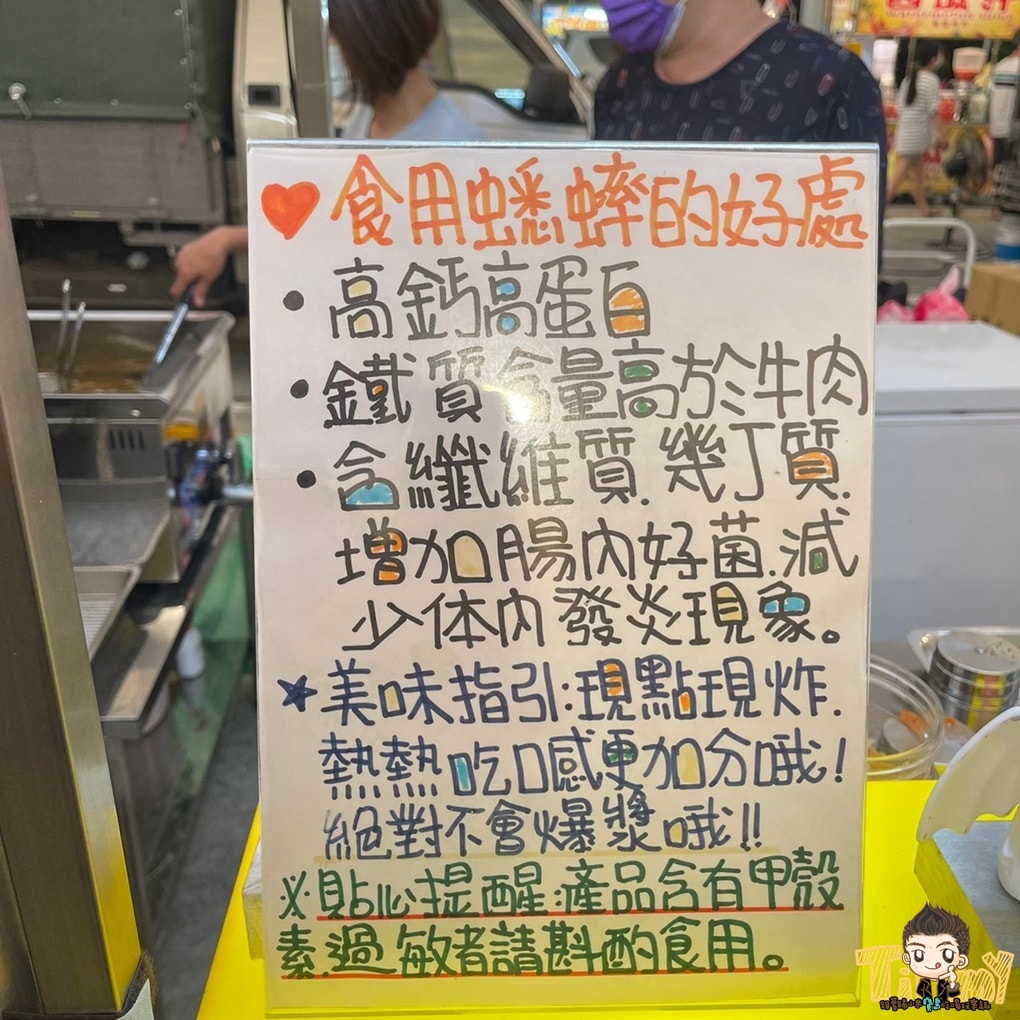 食用蟋蟀的好處
•高鈣高蛋白
•鐵質含量高於牛肉
•含纖維質.幾丁質.
增加腸內好菌.減
少体內發炎現象。
★美味指引:現點現炸.
熱熱吃口感更加分哦!
絕對不會爆漿哦!!
※貼心提醒:產品含有甲殼
素.過敏者請斟酌食用。